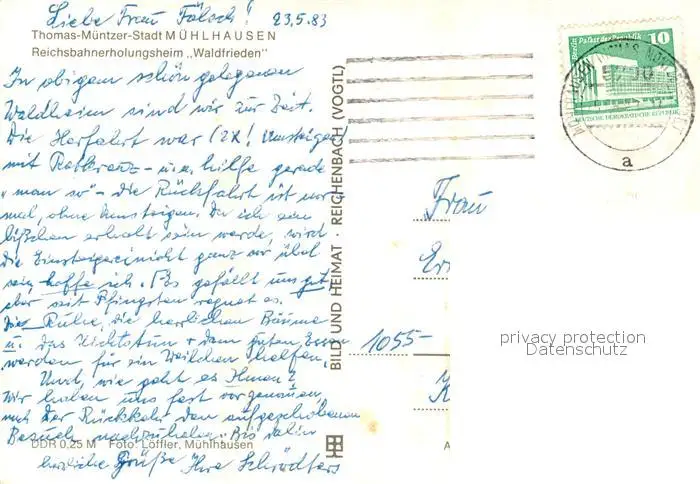 Liebe Frau Fölsch! 23.5.83
Thomas-Müntzer-Stadt MÜHLHAUSEN
Reichsbahnerholungsheim „Waldfrieden"
In obigem schön gelegenen
Waldheim sind wir zur Zeit.
Die Herfahrt war (2x! Umsteigen
mit Reichenz - u.s.w. hilfe gerade
„man so" - die Rückfahrt ist nor
mal, ohne Umsteigen. Da ich ein
bißchen erholt sein werde, wird
die Einsteigerei nicht ganz so übel
sein, hoffe ich. Es gefällt uns gut
aber seit Pfingsten regnet es.
Die Ruhe, die herrlichen Bäume
u. das Nichtstun + dem guten Essen
werden für ein Weilchen helfen.
Und, wie geht es Ihnen?
Wir haben uns fest vorgenommen,
nach der Rückkehr den aufgeschobenen
Besuch nachzuholen. Bis dahin
herzliche Grüße Ihre Schrödters
DDR 0,25 M Foto: Löffler, Mühlhausen
BILD UND HEIMAT · REICHENBACH (VOGTL)
Palast der Republik 10
DEUTSCHE DEMOKRATISCHE REPUBLIK
a
Frau
1055-
A
privacy protection
Datenschutz